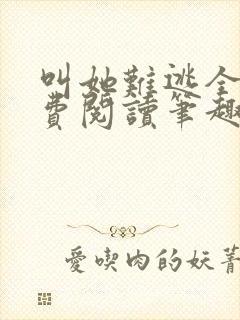 叫她難逃全
費閱讀筆趣
愛喫肉的妖